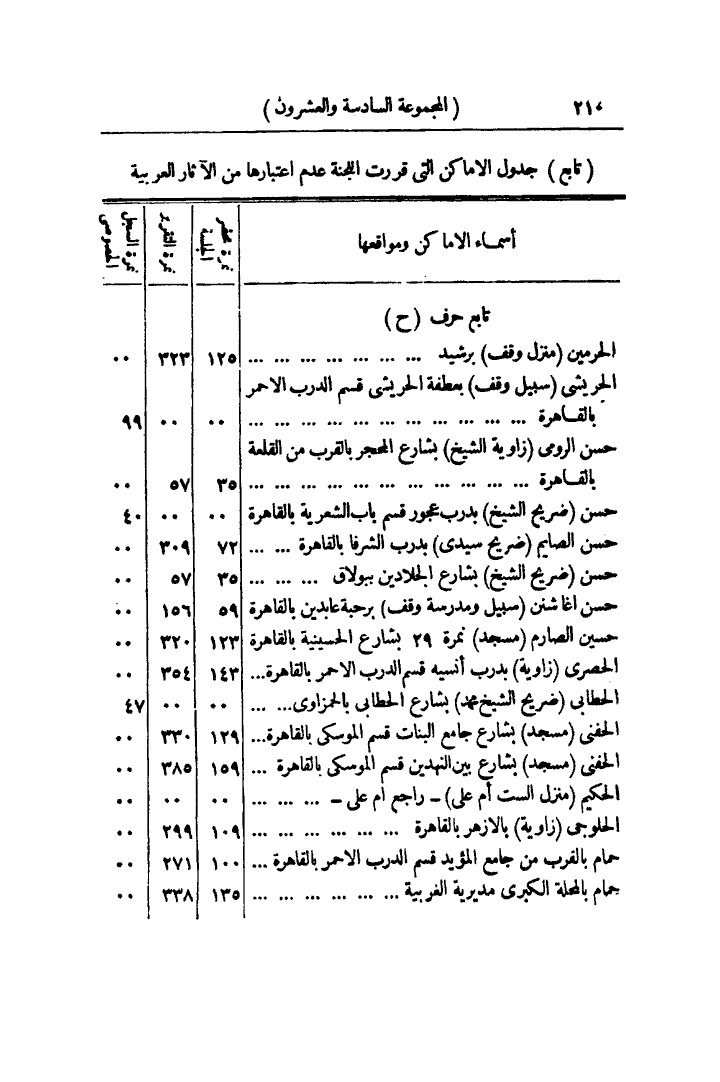 ٢١٠ ( المجموعة السادسة والعشرون )
( تابع ) جدول الاماكن التى قررت اللجنة عدم اعتبارها من الآثار العربية
أسماء الاماكن ومواقعها | نمرة محضر الجلسة | نمرة التقرير | نمرة السجل الخصوصى
تابع حرف ( ح )
الحرمين (منزل وقف) برشيد ... ... ... ... ... ... ... ١٢٥ ٣٢٣ ٠٠
الحريشى (سبيل وقف) بعطفة الحريشى قسم الدرب الاحمر
بالقاهرة ... ... ... ... ... ... ... ... ... ... ... ٠٠ ٠٠ ٩٩
حسن الرومى (زاوية الشيخ) بشارع المحجر بالقرب من القلعة
بالقاهرة ... ... ... ... ... ... ... ... ... ... ... ٣٥ ٥٧ ٠٠
حسن (ضريح الشيخ) بدرب عجور قسم باب الشعرية بالقاهرة ٠٠ ٠٠ ٤٠
حسن الصايم (ضريح سيدى) بدرب الشرفا بالقاهرة ... ... ٧٢ ٣٠٩ ٠٠
حسن (ضريح الشيخ) بشارع الجلادين ببولاق ... ... ... ٣٥ ٥٧ ٠٠
حسن اغا شنن (سبيل ومدرسة وقف) برحبة عابدين بالقاهرة ٥٩ ١٥٦ ٠٠
حسين الصارم (مسجد) نمرة ٢٩ بشارع الحسينية بالقاهرة ١٢٣ ٣٢٠ ٠٠
الحصرى (زاوية) بدرب أنسيه قسم الدرب الاحمر بالقاهرة... ١٤٣ ٣٥٤ ٠٠
الحطابى (ضريح الشيخ محمد) بشارع الحطابى بالحمزاوى... ... ٠٠ ٠٠ ٤٧
الحفنى (مسجد) بشارع جامع البنات قسم الموسكى بالقاهرة... ١٢٩ ٣٣٠ ٠٠
الحفنى (مسجد) بشارع بين النهدين قسم الموسكى بالقاهرة ... ١٥٩ ٣٨٥ ٠٠
الحكيم (منزل الست أم على) – راجع ام على – ... ... ... ٠٠ ٠٠ ٠٠
الحلوجى (زاوية) بالازهر بالقاهرة ... ... ... ... ... ... ١٠٩ ٢٩٩ ٠٠
حمام بالقرب من جامع المؤيد قسم الدرب الاحمر بالقاهرة ... ١٠٠ ٢٧١ ٠٠
حمام بالمحلة الكبرى مديرية الغربية ... ... ... ... ... ... ١٣٥ ٣٣٨ ٠٠